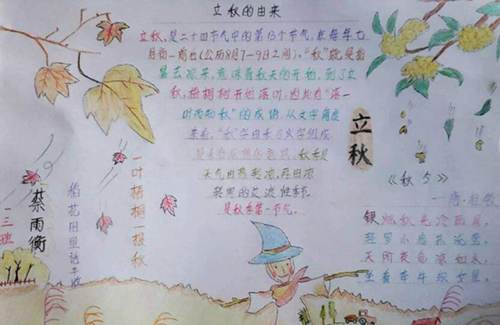 立秋的由来
立秋,是二十四节气中的第13个节气,在每年七
月初一前后(公历8月7-9日之间)。"秋"就是指
暑去凉来,意味着秋天的开始。到了立
秋,梧桐树开始落叶,因此有"落一
叶而知秋"的成语,从文字角度
来看,"秋"字由禾与火字组成
秋季是
天气由热转凉,再由凉
转寒的过渡性季节
是秋季第一节气。
立秋
《秋夕》
一唐·杜牧
银烛秋光冷画屏,
轻罗小扇扑流萤。
天阶夜色凉如水,
坐看牵牛织女星。
一叶梧桐一报秋
稻花田里话丰收
蔡雨衡
一三班